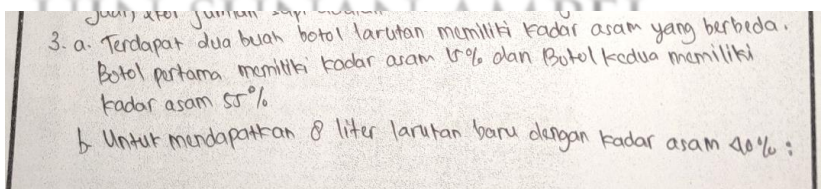 Jadi,
3. a. Terdapat dua buah botol larutan memiliki kadar asam yang berbeda.
Botol pertama memiliki kadar asam 15% dan Botol kedua memiliki
kadar asam 55%
b Untuk mendapatkan 8 liter larutan baru dengan kadar asam 40% :